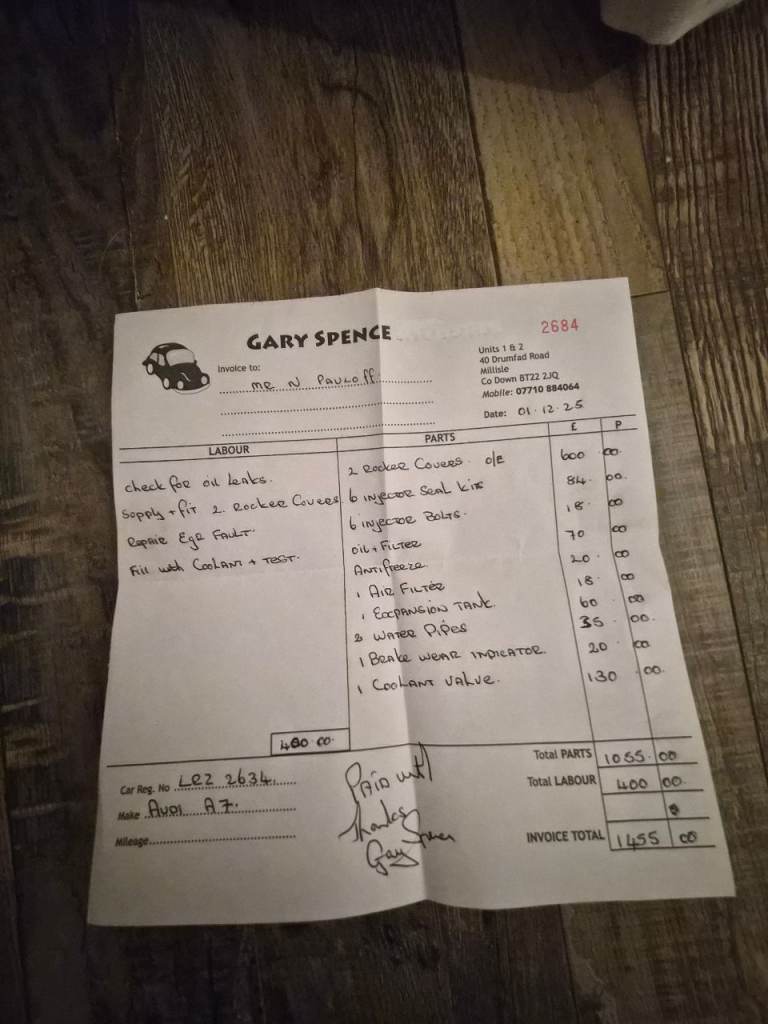 GARY SPENCE
2684
Units 1 & 2
40 Drumfad Road
Millisle
Co Down BT22 2JQ
Mobile: 07710 884064
Invoice to: Mr N Pauloff
Date: 01.12.25
LABOUR PARTS £ P
check for oil leaks.
Supply + fit 2 Rocker Covers
Repair Egr Fault.
Fill with Coolant + Test.
2 Rocker Covers. O/E 600 00
6 Injector Seal Kits 84. 00.
6 Injector Bolts. 18. 00
Oil + Filter 70 00
Antifreeze 20. 00
1 Air Filter 18. 00
1 Expansion Tank. 60 00
2 Water Pipes 35. 00.
1 Brake Wear Indicator. 20 00
1 Coolant Valve. 130 00.
400 00.
Car Reg. No LEZ 2634
Make Audi A7.
Mileage
Paid with
Thanks
Gary Spence
Total PARTS 1055.00
Total LABOUR 400 00.
INVOICE TOTAL 1455 00